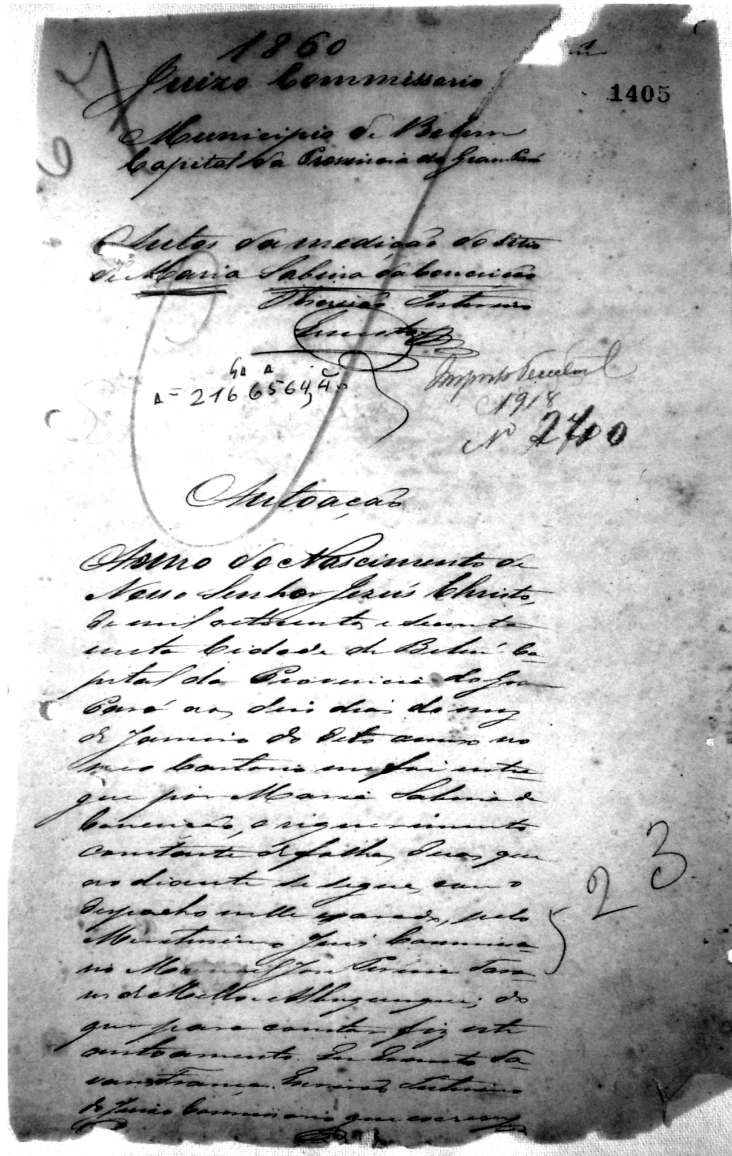 1860
Juizo Commissario
1405
Municipio de Belem
Capital da Provincia do Gram Pará
Autos da medição do sitio
de Maria Sabina da Conceição
Escrivão Interino
A = 2166564,
Imposto
1918
Nº 2700
Autoação
Anno do Nascimento de
Nosso Senhor Jezús Christo,
de mil oitocentos e secenta
nesta Cidade de Belem Ca-
pital da Provincia do Gram
Pará aos dois dias do mez
de Janeiro do dito anno no
meo Cartorio me foi entre-
gue por Maria Sabina da
Conceição, o riquerimento
constante de folhas duas, que
ao diante se segue, com o
despacho nelle exarado, pelo
Juis Commissa-
rio Manoel Jose Pereira
de Mello e Albuquerque; do
que para constar fiz este
autoamento. Eu
França Escrivão Interino
do Juizo Commissario que escrevy
523